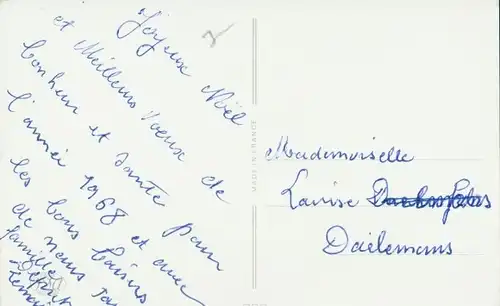 Joyeux Noël
et Meilleurs Voeux de
bonheur et Santé pour
l'année 1968 et avec
les bons baisers
de nous
famille
MADE IN FRANCE
Mademoiselle
Louise
Daelemans